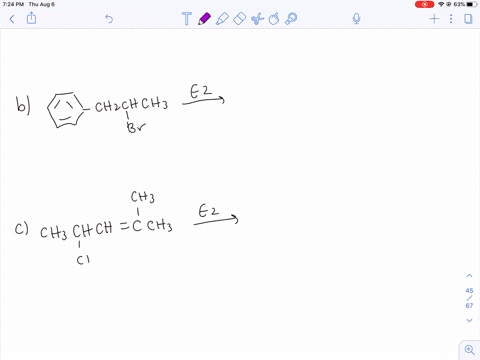 7:24 PM Thu Aug 6
63%
b) CH2CHCH3 E2
Br
CH3
c) CH3CHCH=CCH3 E2
Cl
45
/
67